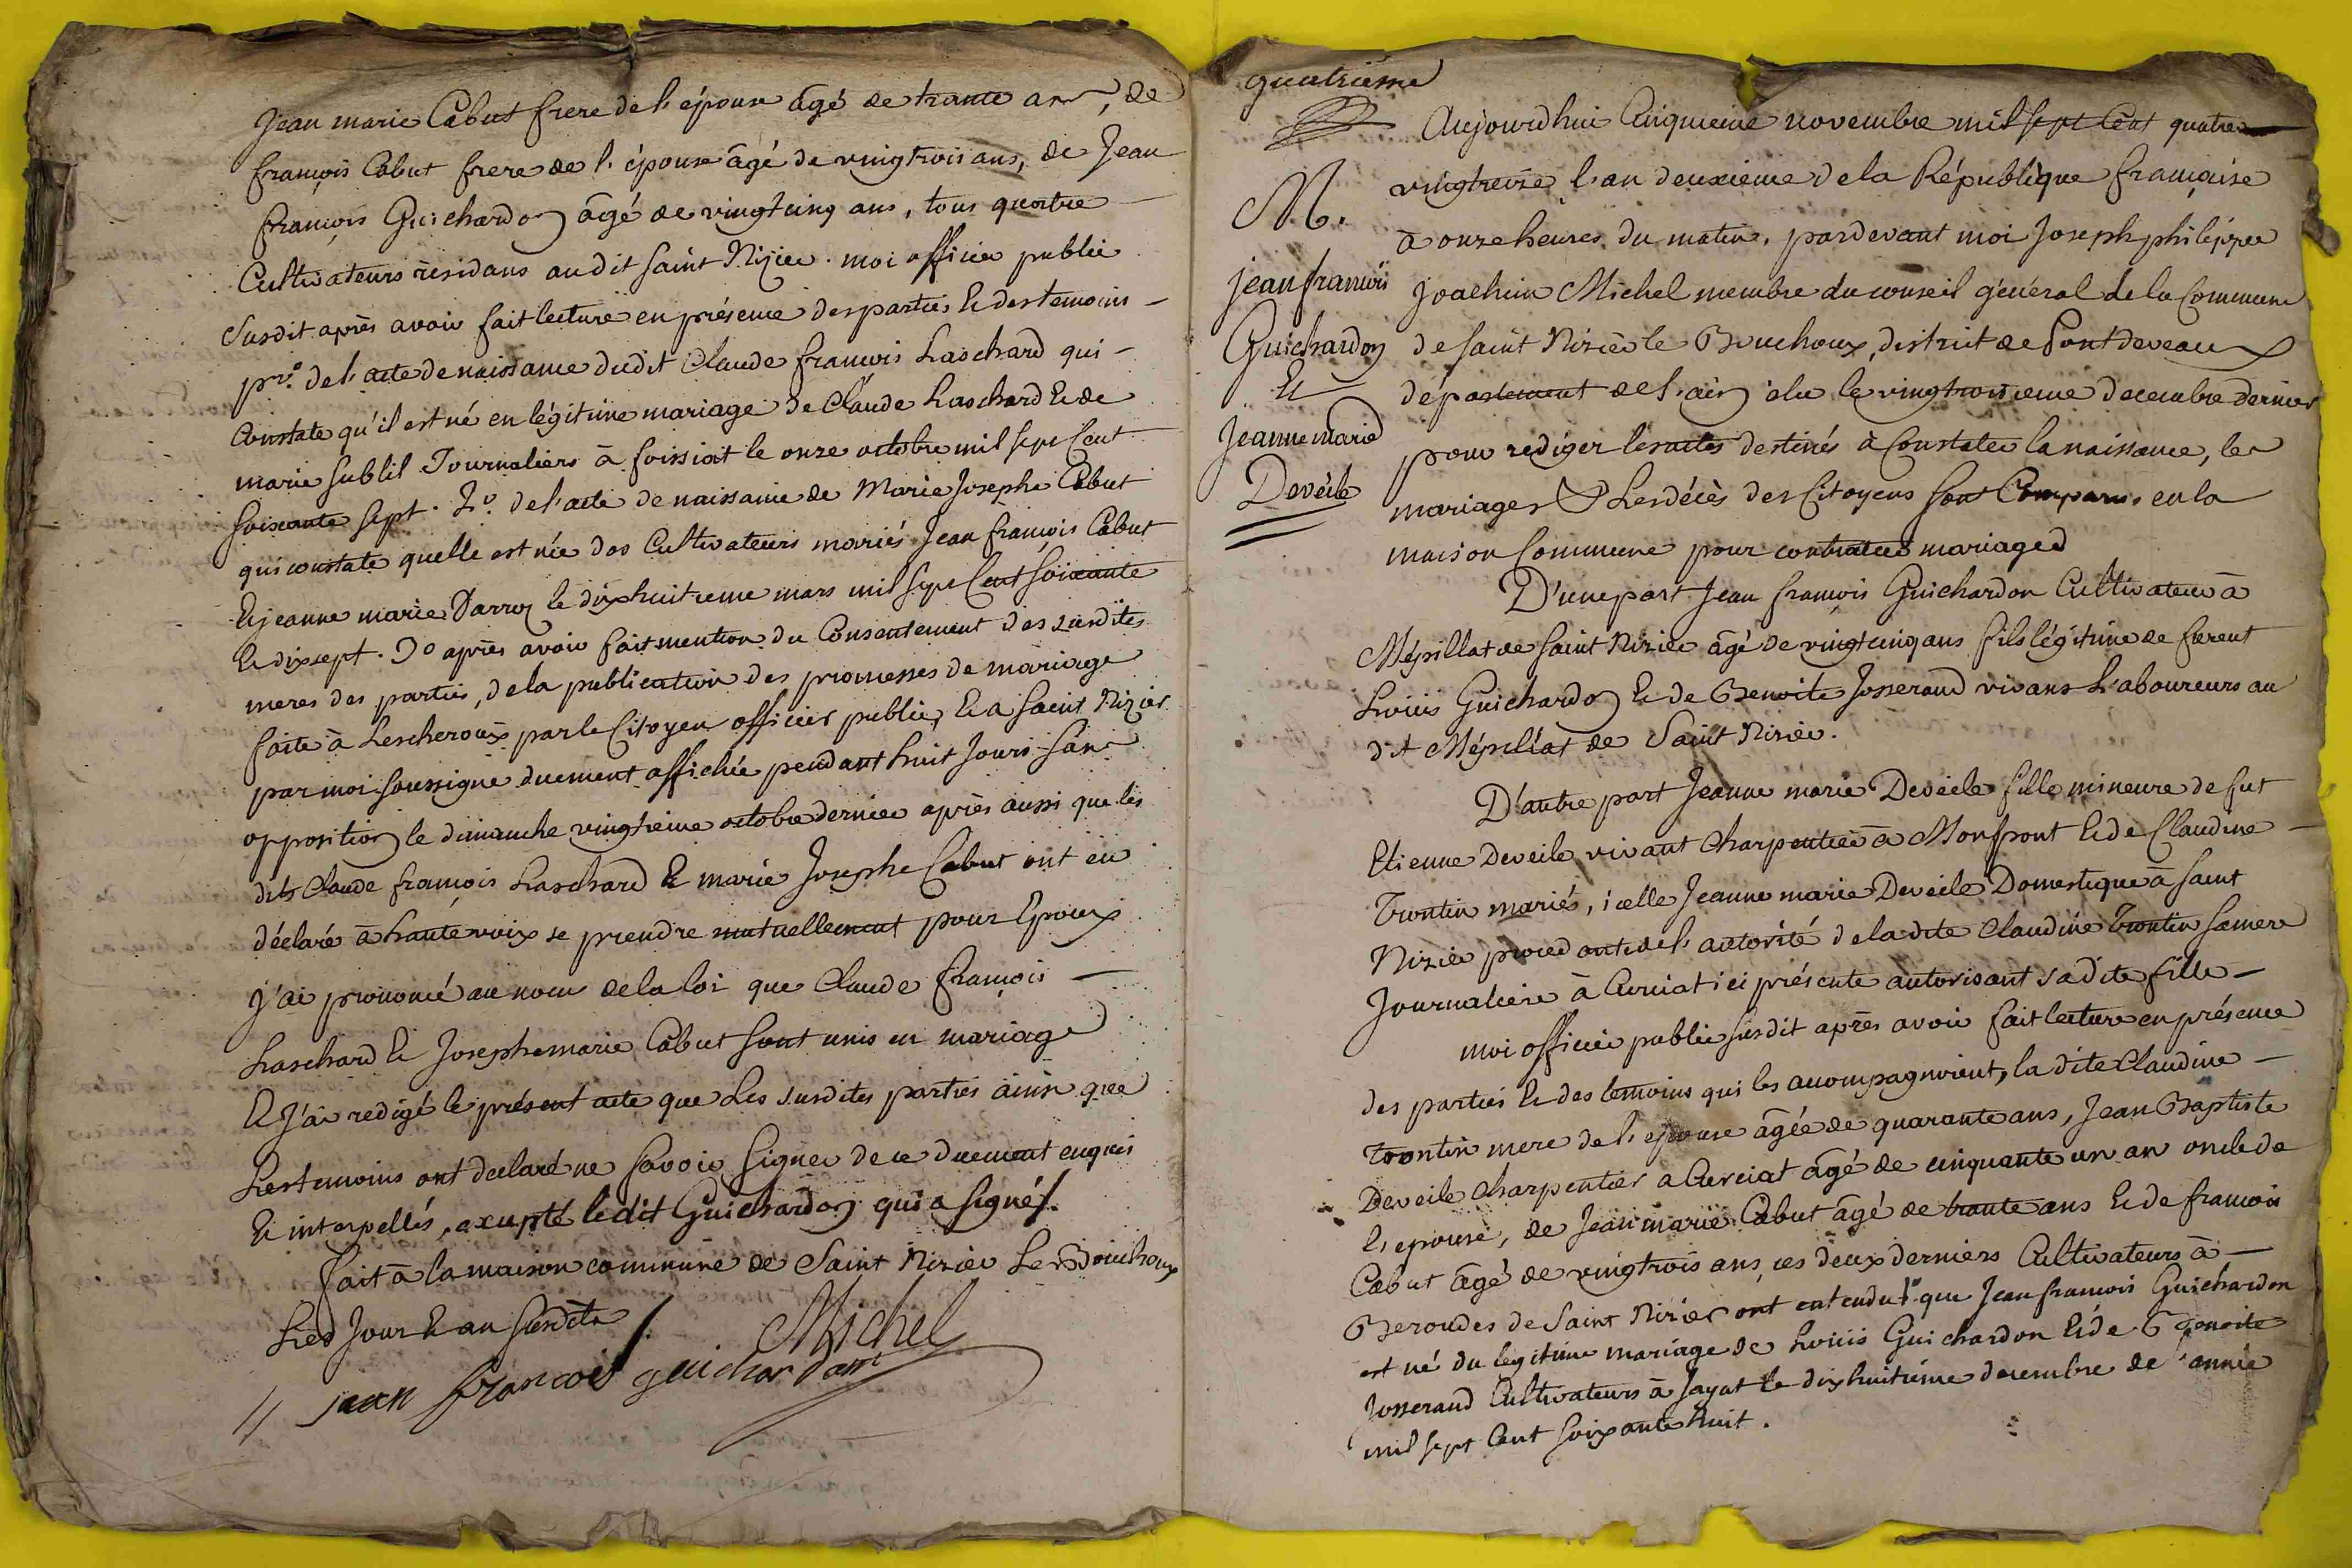 Jean marie Cabut frere de l'épouse âgé de trante ans, de
françois Cabut frere de l'épouse âgé de vingtrois ans, de Jean
françois Guichardon âgé de vingtcinq ans, tous quatre
Cultivateurs résidans audit saint Nizier. moi officier public
susdit après avoir fait lecture en présence des parties et des temoins
pro. de l'acte de naissance dudit Claude françois Laschard qui
Constate qu'il est né en légitime mariage de Claude Laschard et de
marie sublil Journaliers à foissiat le onze octobre mil sept Cent
soixante sept. 2o. de l'acte de naissance de Marie Josephe Cabut
qui constate quelle est née des Cultivateurs mariés Jean françois Cabut
et jeanne marie Darroz le dixhuitieme mars mil sept Cent soixante
et dixsept. 3o après avoir fait mention du Consentement des susdites
meres des parties, de la publication des promesses de mariage
faite à Lescheroux par le Citoyen officier public, et a saint Nizier
par moi soussigné duement affichée pendant huit Jours sans
opposition le dimanche octobre dernier après aussi que les
dits Claude françois Laschard et marie Josephe Cabut ont eu
déclaré à haute voix se prendre mutuellement pour Epoux
j'ai prononcé au nom de la loi que Claude françois
Laschard et Josephe marie Cabut sont unis en mariage
et J'ai redigé le présent acte que Les susdites parties ainsi que
Les temoins ont declaré ne savoir signer de ce duement enquis
et interpellés, axcupté ledit Guichardon qui a signé/.
fait à la maison commune de Saint Nizier Le Bouchoux
Les Jour et an susdits/.
Michel
jean francois guichardont
quatrieme
Aujourdhui Cinquieme novembre mil sept Cent quatre
vingtreize l'an deuxieme de la République françoise
à onze heures du matin, pardevant moi Joseph philippe
Joachim Michel membre du conseil général de la Commune
de saint Nizier le Bouchoux, district de Pontdevaux
département de l'ain élu le vingtroisieme decembre dernier
pour rediger les actes destinés à Constater la naissance, les
mariages & Les décès des Citoyens sont Comparus en la
maison Commune pour contracter mariage
M.
jean francois
Guichardon
Et
Jeanne marie
Deveile
D'une part Jean françois Guichardon Cultivateur à
Mépillat de saint Nizier âgé de vingtcinq ans fils légitime de ferent
Louis Guichardon et de Benoite Josserand vivans Laboureurs au
dit Mépillat de Saint Nizier.
D'autre part Jeanne marie Deveile fille mineure de fut
Etienne Deveile vivant Charpentier à Monspont et de Claudine
Trontin mariés, icelle Jeanne marie Deveile Domestique à saint
Nizier procedante de l'autorité de ladite Claudine Trontin samere
Journaliere à Curciat ici présente autorisant sa dite fille
moi officier public susdit après avoir fait lecture en présence
des parties et des temoins qui les accompagnoient, la dite Claudine
Trontin mere de l'epouse âgée de quarante ans, Jean Baptiste
Deveile Charpentier a Curciat âgé de cinquante un an oncle de
l'epouse, de Jean marie Cabut âgé de trante ans et de francois
Cabut âgé de vingtrois ans, ces deux derniers Cultivateurs à
Beroudes de Saint Nizier ont entendu 1o. que Jean francois Guichardon
est né du légitime mariage de Louis Guichardon et de Benoite
Josserand Cultivateurs à Jayat le dixhuitiéme decembre de l'année
mil sept Cent soixante huit.